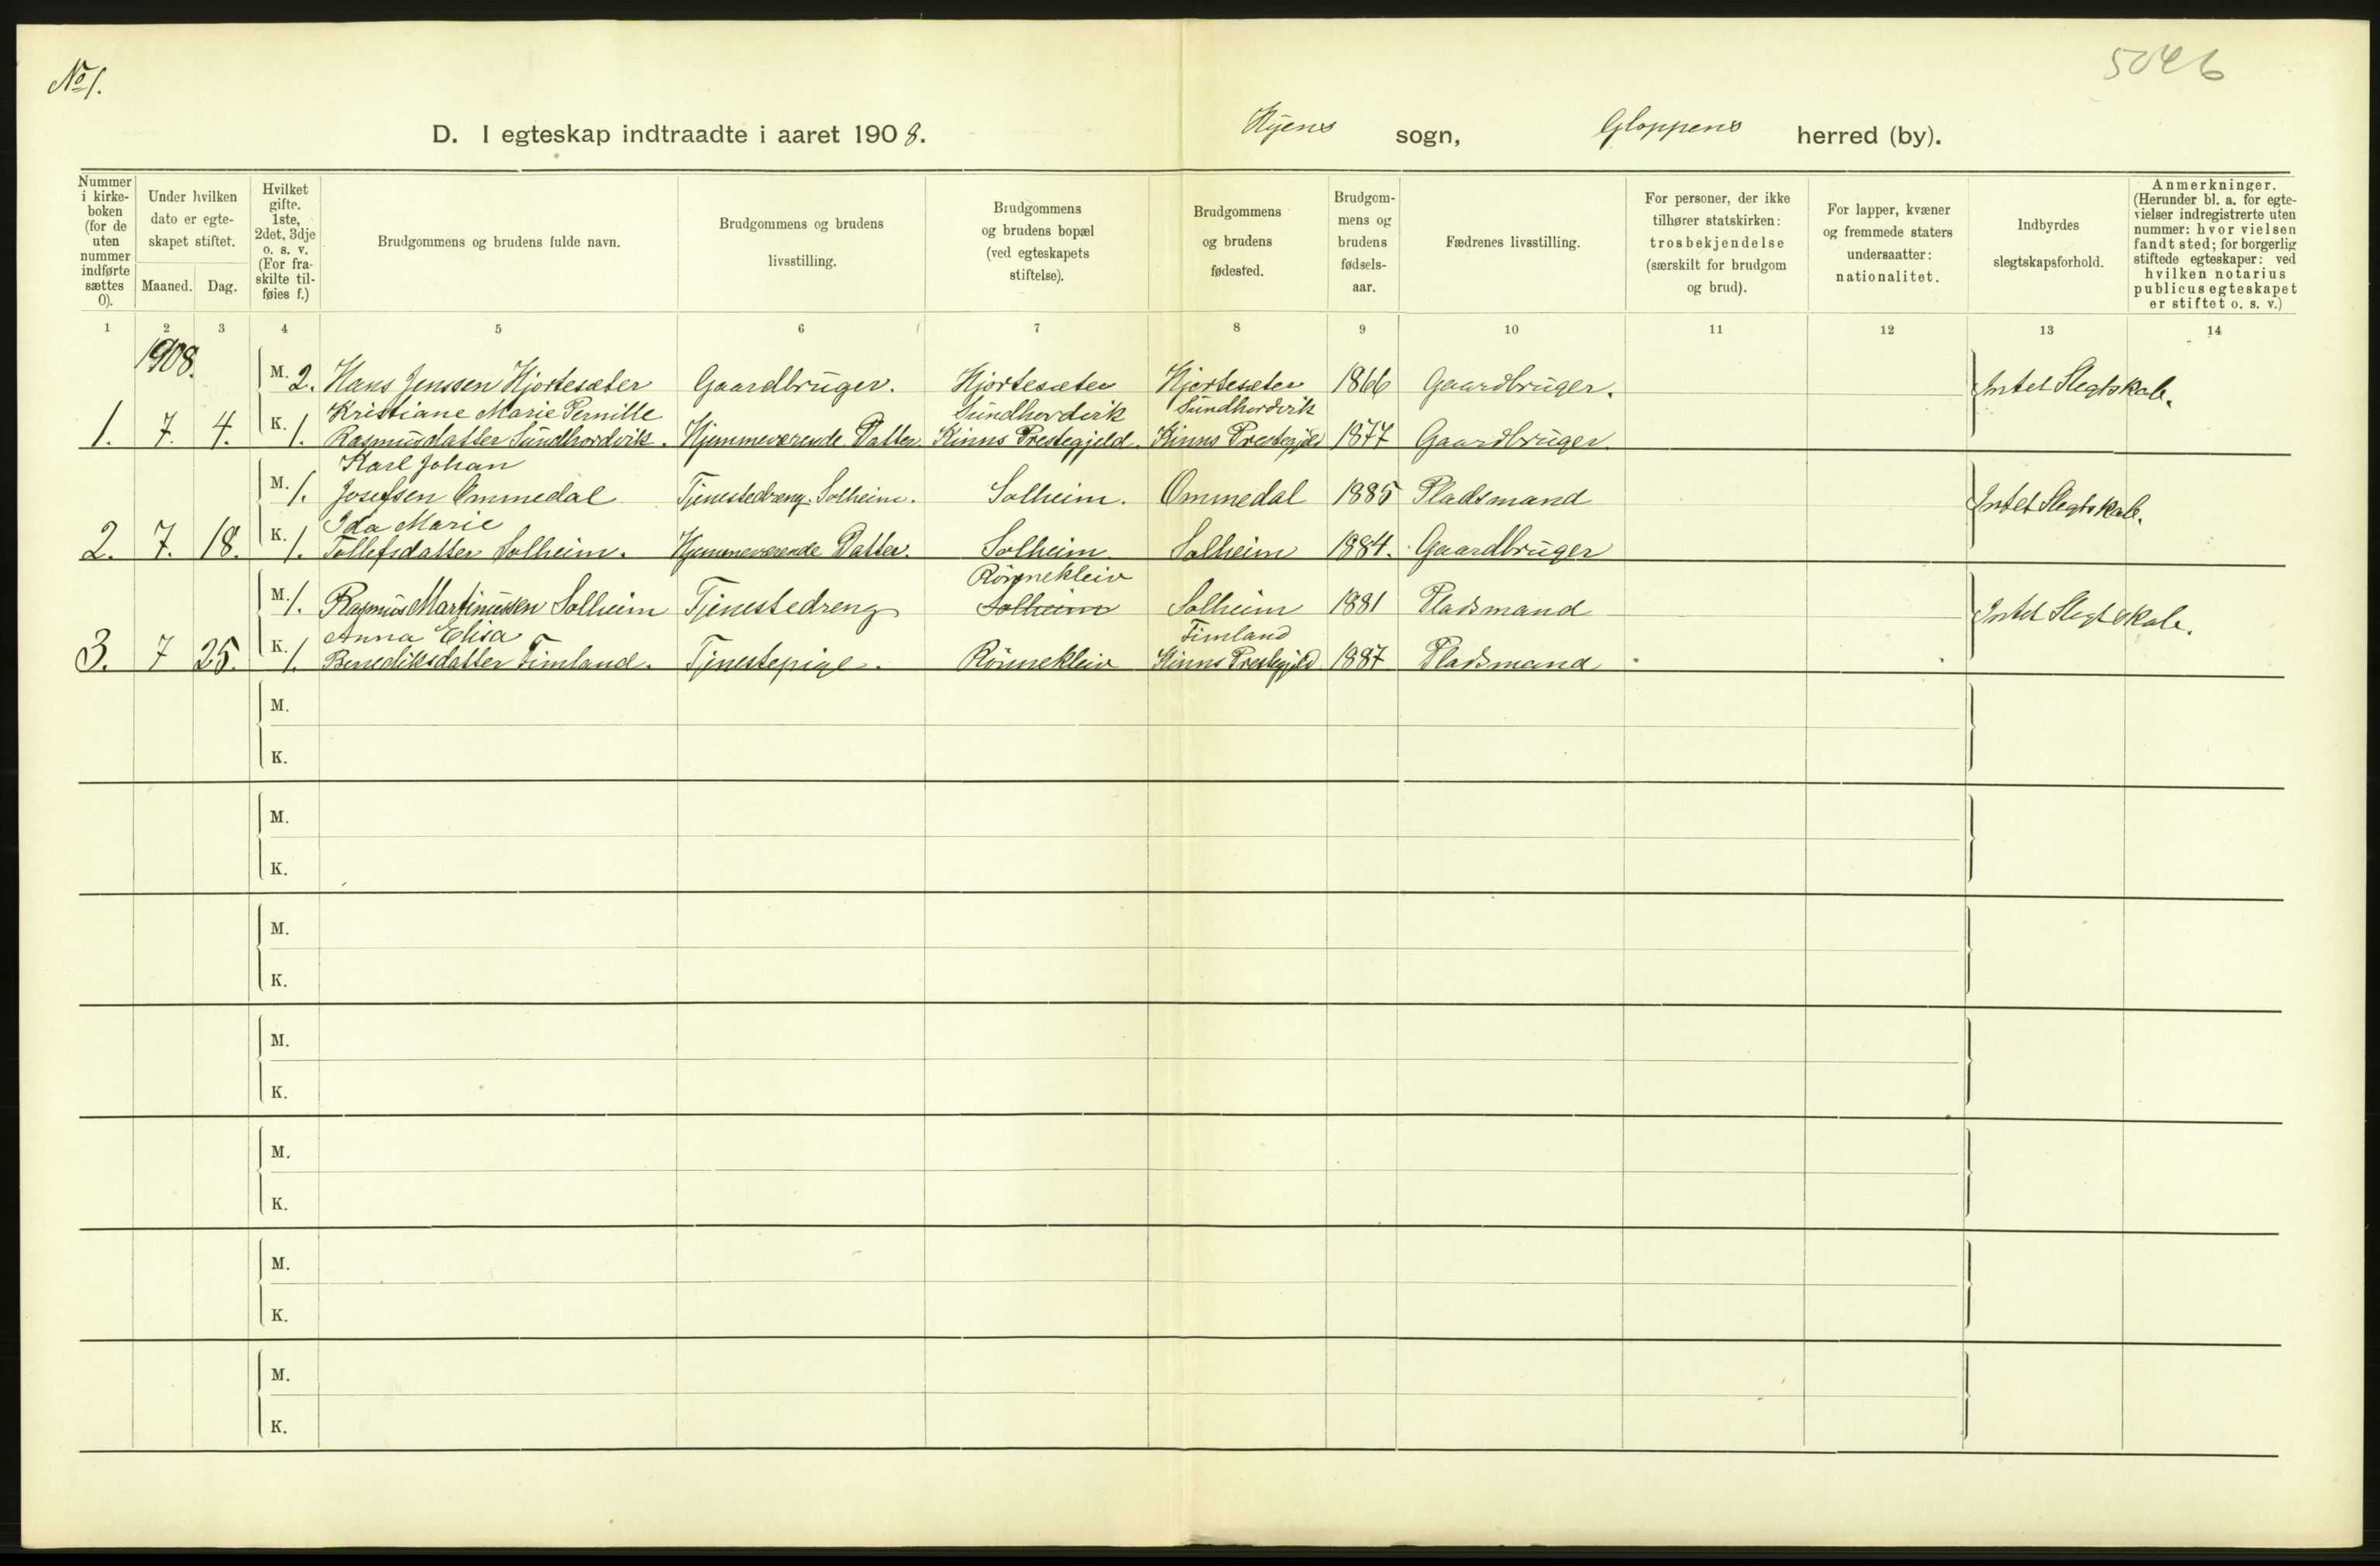 No 1.
5046
D. I egteskap indtraadte i aaret 1908. Hyens sogn, Gloppens herred (by).
Nummer i kirke-boken (for de uten nummer indførte sættes 0).
Under hvilken dato er egte-skapet stiftet.
Maaned. Dag.
Hvilket gifte. 1ste, 2det, 3dje o. s. v. (For fra-skilte til-føies f.)
Brudgommens og brudens fulde navn.
Brudgommens og brudens livsstilling.
Brudgommens og brudens bopæl (ved egteskapets stiftelse).
Brudgommens og brudens fødested.
Brudgom-mens og brudens fødsels-aar.
Fædrenes livsstilling.
For personer, der ikke tilhører statskirken: trosbekjendelse (særskilt for brudgom og brud).
For lapper, kvæner og fremmede staters undersaatter: nationalitet.
Indbyrdes slegtskapsforhold.
Anmerkninger. (Herunder bl. a. for egte-vielser indregistrerte uten nummer: hvor vielsen fandt sted; for borgerlig stiftede egteskaper: ved hvilken notarius publicus egteskapet er stiftet o. s. v.)
1 2 3 4 5 6 7 8 9 10 11 12 13 14
1908.
M. 2. Hans Jenssen Hjortesæter Gaardbruger. Hjortesæter Hjortesæter 1866 Gaardbruger. Intet Slegtskab.
Kristiane Marie Pernille Sundhordvik Sundhordvik
1. 7. 4. K. 1. Rasmusdatter Sundhordvik. Hjemmeværende Datter Kinns Prestegjeld. Kinns Prestegjeld 1877 Gaardbruger.
Karl Johan
M. 1. Josefsen Ommedal Tjenestedreng Solheim. Solheim. Ommedal 1885 Pladsmand Intet Slegtskab.
Ida Marie
2. 7. 18. K. 1. Tollefsdatter Solheim. Hjemmeværende Datter. Solheim. Solheim 1884. Gaardbruger
Rönnekleiv
M. 1. Rasmus Martinussen Solheim Tjenestedreng Solheim Solheim 1881 Pladsmand Intet Slegtskab.
Anna Elisa Timland
3. 7 25. K. 1. Benediksdatter Timland. Tjenestepige. Rönnekleiv Kinns Prestegjeld 1887 Pladsmand
M.
K.
M.
K.
M.
K.
M.
K.
M.
K.
M.
K.
M.
K.